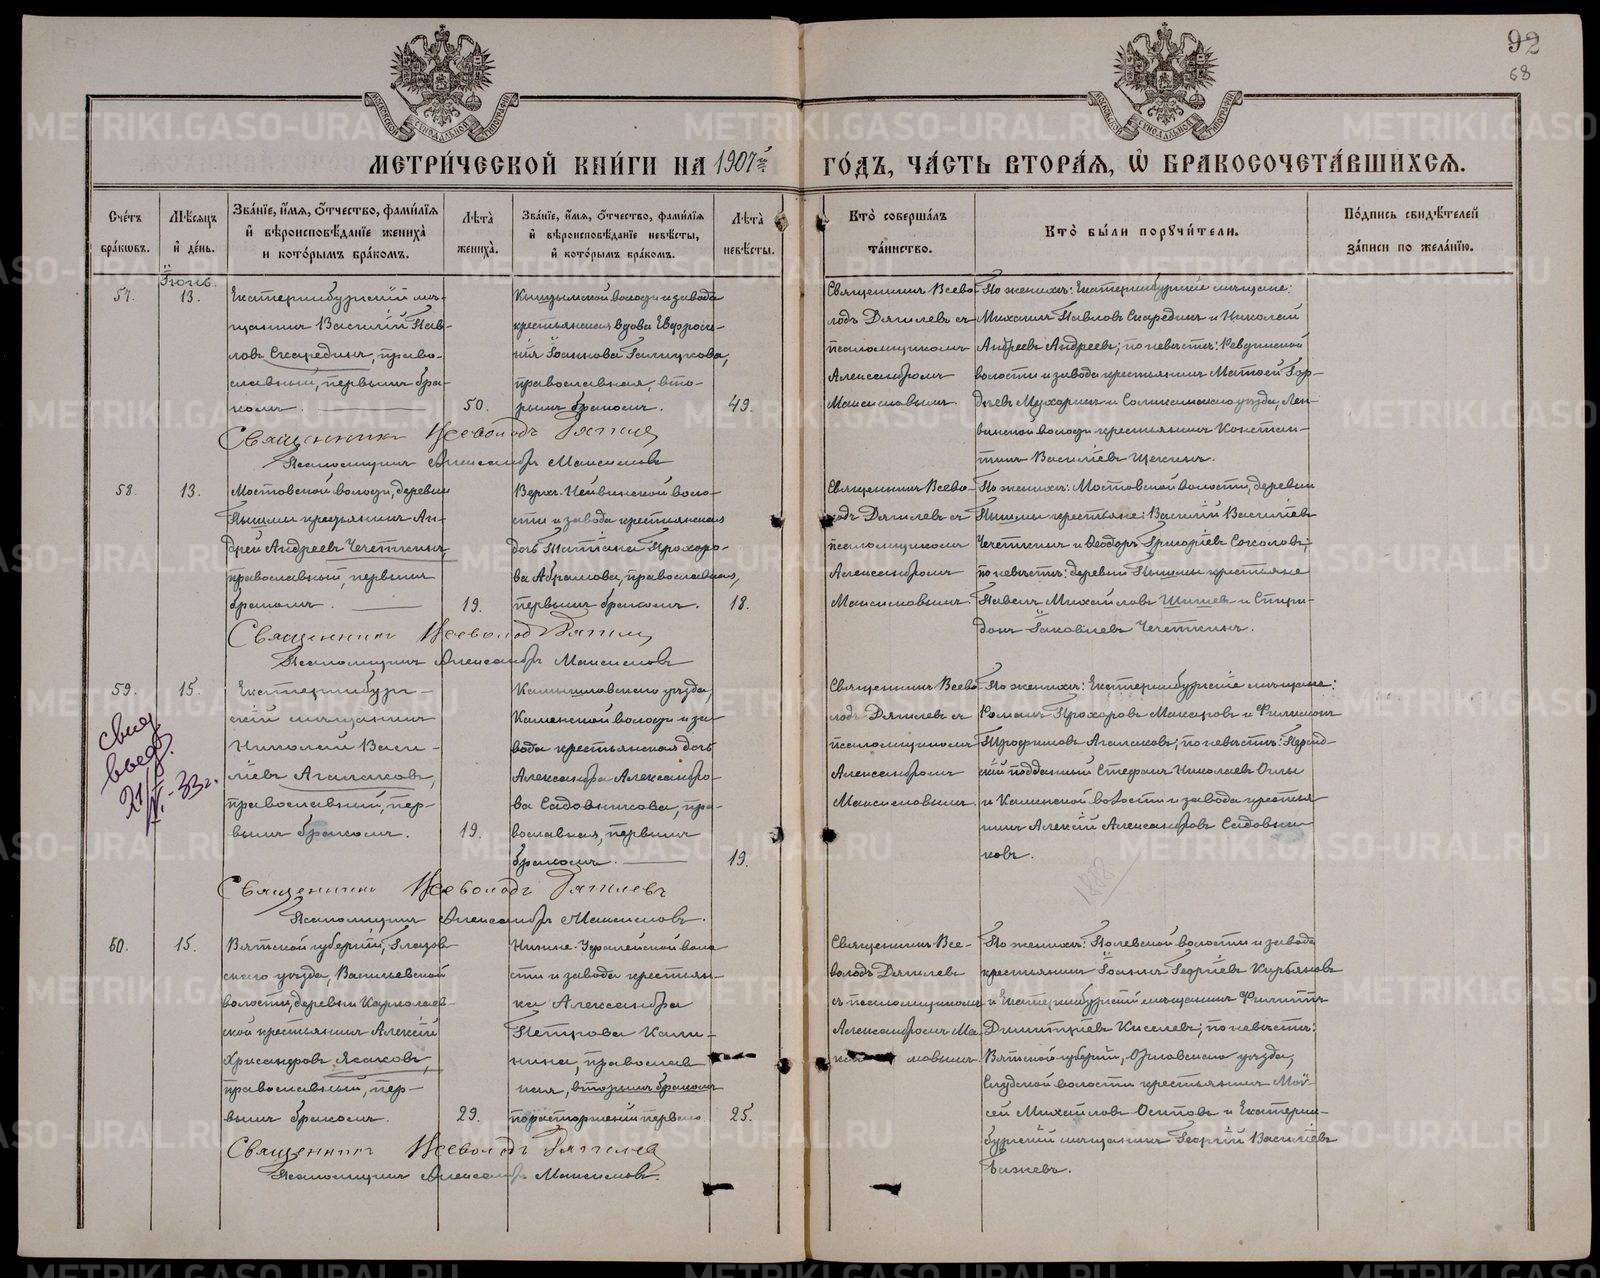 92
68
МОСКОВСКОЙ СѴНОДАЛЬНОЙ ТИПОГРАФІИ
МОСКОВСКОЙ СѴНОДАЛЬНОЙ ТИПОГРАФІИ
МЕТРИ́ЧЕСКОЙ КНИ́ГИ НА 1907й
ГО́ДЪ, ЧА́СТЬ ВТОРА́Я, Ѡ БРАКОСОЧЕТА́ВШИХСЯ.
Сче́тъ бра́кѡвъ.
Мѣ́сяцъ и де́нь.
Зва́нїе, и́мя, ѻ́тчество, фами́лїя и вѣроисповѣ́данїе жениха̀ и кото́рымъ бра́комъ.
Лѣта̀ жениха̀.
Зва́нїе, и́мя, ѻ́тчество, фами́лїя и вѣроисповѣ́данїе невѣ́сты, и кото́рымъ бра́комъ.
Лѣта̀ невѣ́сты.
Кто̀ соверша́лъ та́инство.
Кто̀ бы́ли порꙋчи́тели.
По́дпись свидѣ́телей за́писи по жела́нїю.
Іюнь.
57.
13.
Екатеринбургскій мѣ-
щанинъ Василій Пав-
ловъ Скарединъ, право-
славный, первымъ бра-
комъ.
50.
Кыштымской волости и завода
крестьянская вдова Евфроси-
нія Іоаннова Галицкова,
православная, вто-
рымъ бракомъ.
49.
Священникъ Всево-
лодъ Дягилевъ съ
псаломщикомъ
Александромъ
Максимовымъ.
По женихѣ: Екатеринбургскіе мѣщане:
Михаилъ Павловъ Скарединъ и Николай
Андреевъ Андреевъ; по невѣстѣ: Ревдинской
волости и завода крестьянинъ Матѳей Гор-
дѣевъ Мухоринъ и Соликамскаго уѣзда, Лен-
винской волости крестьянинъ Констан-
тинъ Василіевъ Щекинъ.
Священникъ Всеволодъ Дягилев
Псаломщикъ Александръ Максимовъ
58.
13.
Мостовской волости, деревни
Пышмы крестьянинъ Ан-
дрей Андреевъ Чечеткинъ
православный, первымъ
бракомъ.
19.
Верхъ-Нейвинской воло-
сти и завода крестьянская
дочь Татіана Прохоро-
ва Абрамова, православная,
первымъ бракомъ.
18.
Священникъ Всево-
лодъ Дягилевъ съ
псаломщикомъ
Александромъ
Максимовымъ.
По женихѣ: Мостовской волости, деревни
Пышмы крестьяне: Василій Василіевъ
Чечеткинъ и Ѳеодоръ Григоріевъ Соколовъ;
по невѣстѣ: деревни Пышмы крестьяне
Павелъ Михайловъ Шишевъ и Спири-
донъ Іаковлевъ Чечеткинъ.
Священникъ Всеволодъ Дягилев
Псаломщикъ Александръ Максимовъ
59.
15.
свид.
выед.
21/IV-33г.
Екатеринбург-
скій мѣщанинъ
Николай Васи-
ліевъ Агалаковъ,
православный, пер-
вымъ бракомъ.
19.
Камышловскаго уѣзда,
Каменской волости и за-
вода крестьянская дочь
Александра Александро-
ва Садовникова, пра-
вославная, первымъ
бракомъ.
19.
Священникъ Всево-
лодъ Дягилевъ съ
псаломщикомъ
Александромъ
Максимовымъ.
По женихѣ: Екатеринбургскіе мѣщане:
Романъ Прохоровъ Макаровъ и Филимонъ
Трофимовъ Агалаковъ; по невѣстѣ: Персид-
скій подданный Стефанъ Николаевъ Оглы
и Каменской волости и завода крестья
нинъ Алексій Александровъ Садовни
ковъ.
Священникъ Всеволодъ Дягилевъ
Псаломщикъ Александръ Максимовъ.
60.
15.
Вятской губерніи, Глазов
скаго уѣзда, Васильевской
волости, деревни Карполаев-
ской крестьянинъ Алексій
Хрисанфовъ Ясаковъ,
православный, пер-
вымъ бракомъ.
29.
Нижне-Уфалейской воло
сти и завода крестьян-
ка Александра
Петрова Кали-
нина, православ
ная, вторымъ бракомъ
по расторженіи перваго.
25.
Священникъ Все-
володъ Дягилевъ
съ псаломщикомъ
Александромъ Ма
симовымъ
По женихѣ: Полевской волости и завода
крестьянинъ Іоаннъ Георгіевъ Курбановъ
и Екатеринбургскій мѣщанинъ Филиппъ
Димитріевъ Киселевъ; по невѣстѣ:
Вятской губерніи, Орловскаго уѣзда,
Слудской волости крестьянинъ Мои-
сей Михайловъ Осиповъ и Екатерин-
бургскій мѣщанинъ Георгій Василіевъ
Бажевъ.
Священникъ Всеволодъ Дягилев
Псаломщикъ Александръ Максимовъ.
METRIKI.GASO-URAL.RU